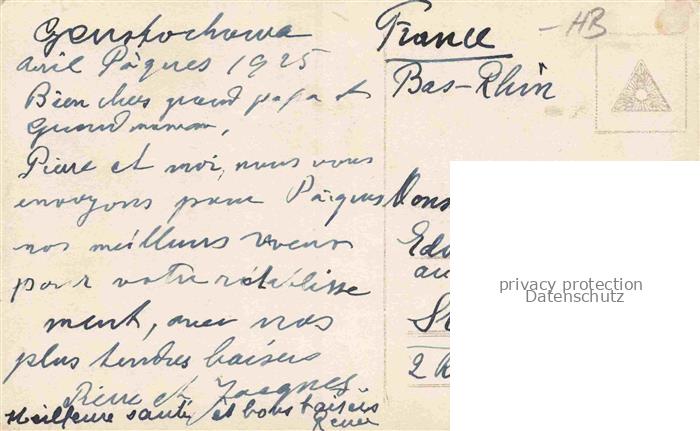 Czenstochowa
Avril Pâques 1925
Bien chers grand papa et
Grand maman,
Pierre et moi, nous vous
envoyons pour Pâques
nos meilleurs voeux
pour votre rétablisse
ment, avec nos
plus tendres baisers
Pierre et Jacques
Meilleure santé et bons baisers
Renée
HB
France
Bas-Rhin
Mons
Edo
au
St
2 R
privacy protection
Datenschutz